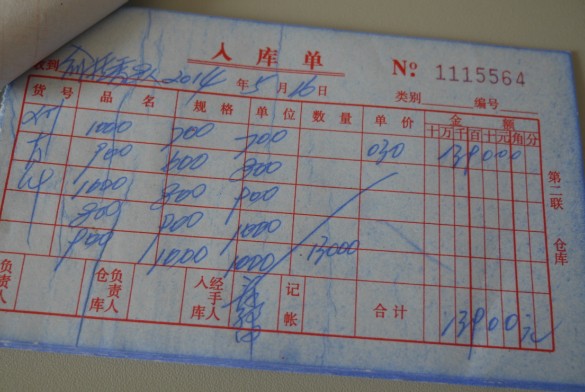 入库单
№ 1115564
收到 2014年5月16日
类别 编号
货号 品名 规格 单位 数量 单价 金额
十万千百十元角分
1000 700 700 030 139000
900 600 800
1000 800 900
800 900 1000
900 1000 1000 13000
第二联 仓库
负责人 仓库负责人 经手入库人 记帐 合计 13900元